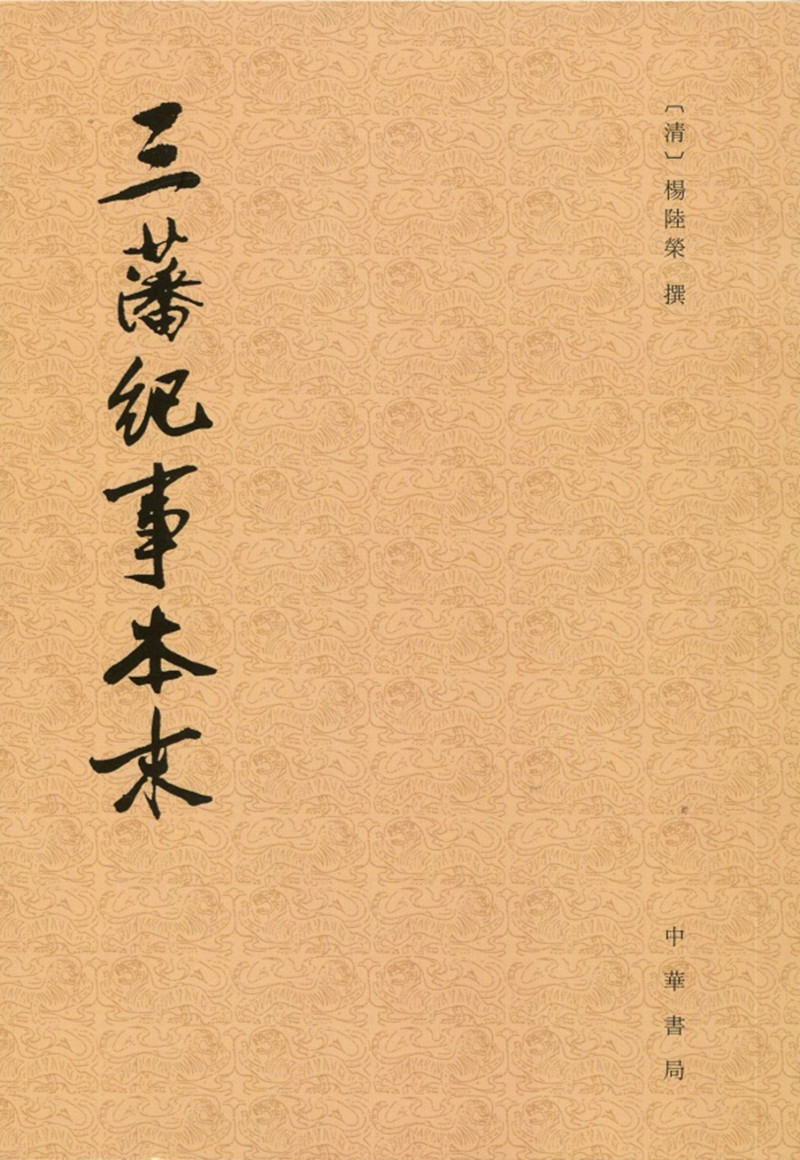 〔清〕楊陸榮 撰
三藩紀事本末
中華書局